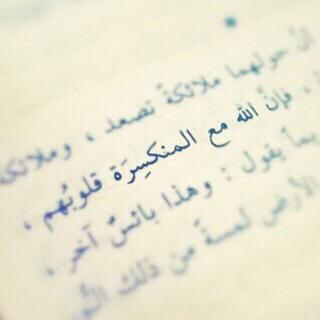 أنّ حولهما ملائكةً تصعد ، وملائكة
، فإنَّ الله مع المنكسِرَة قلوبُهم ،
بما يقول : وهذا بائسٌ آخر ،
الأرض لمسةً من ذلك النُّور